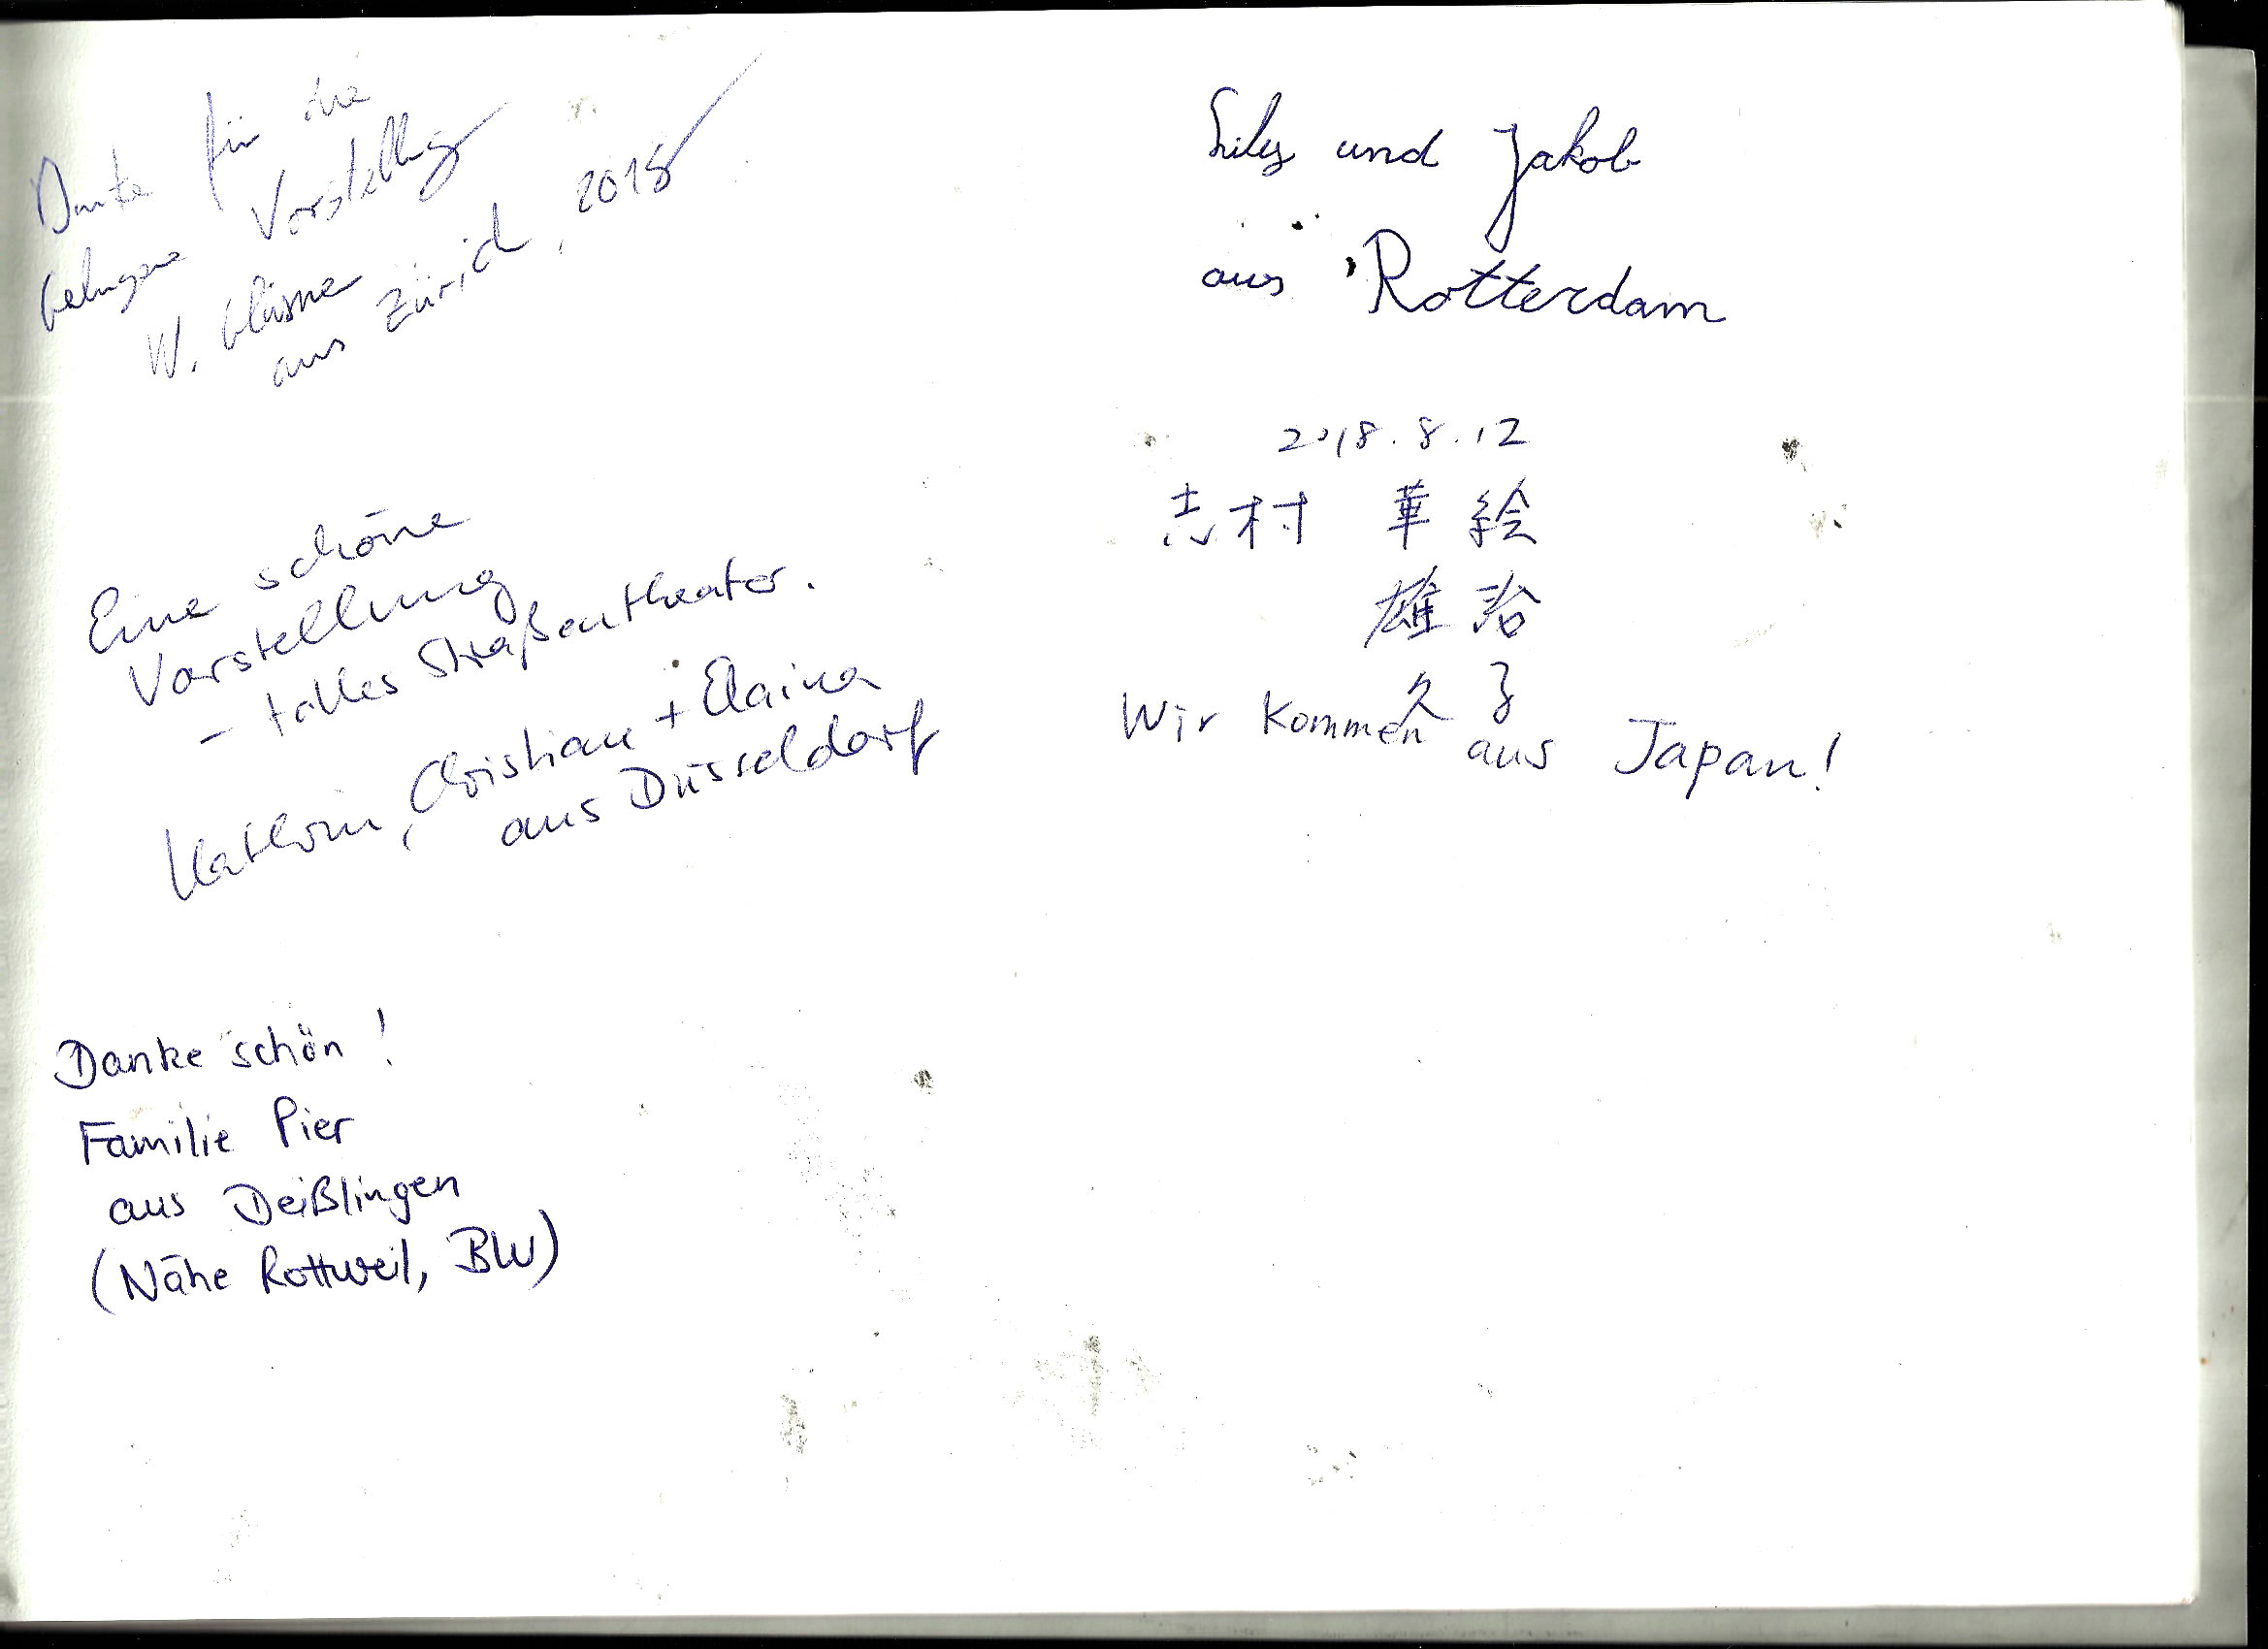 Danke für die
gelungene Vorstellung
W.
aus Zürich, 2018
Eine schöne
Vorstellung
- tolles Straßentheater.
Kathrin, Christian + Elaina
aus Düsseldorf
Danke schön!
Familie Pier
aus Deißlingen
(Nähe Rottweil, BW)
Lily und Jakob
aus Rotterdam
2018.8.12
志村 華絵
雄治
久子
Wir kommen aus Japan!